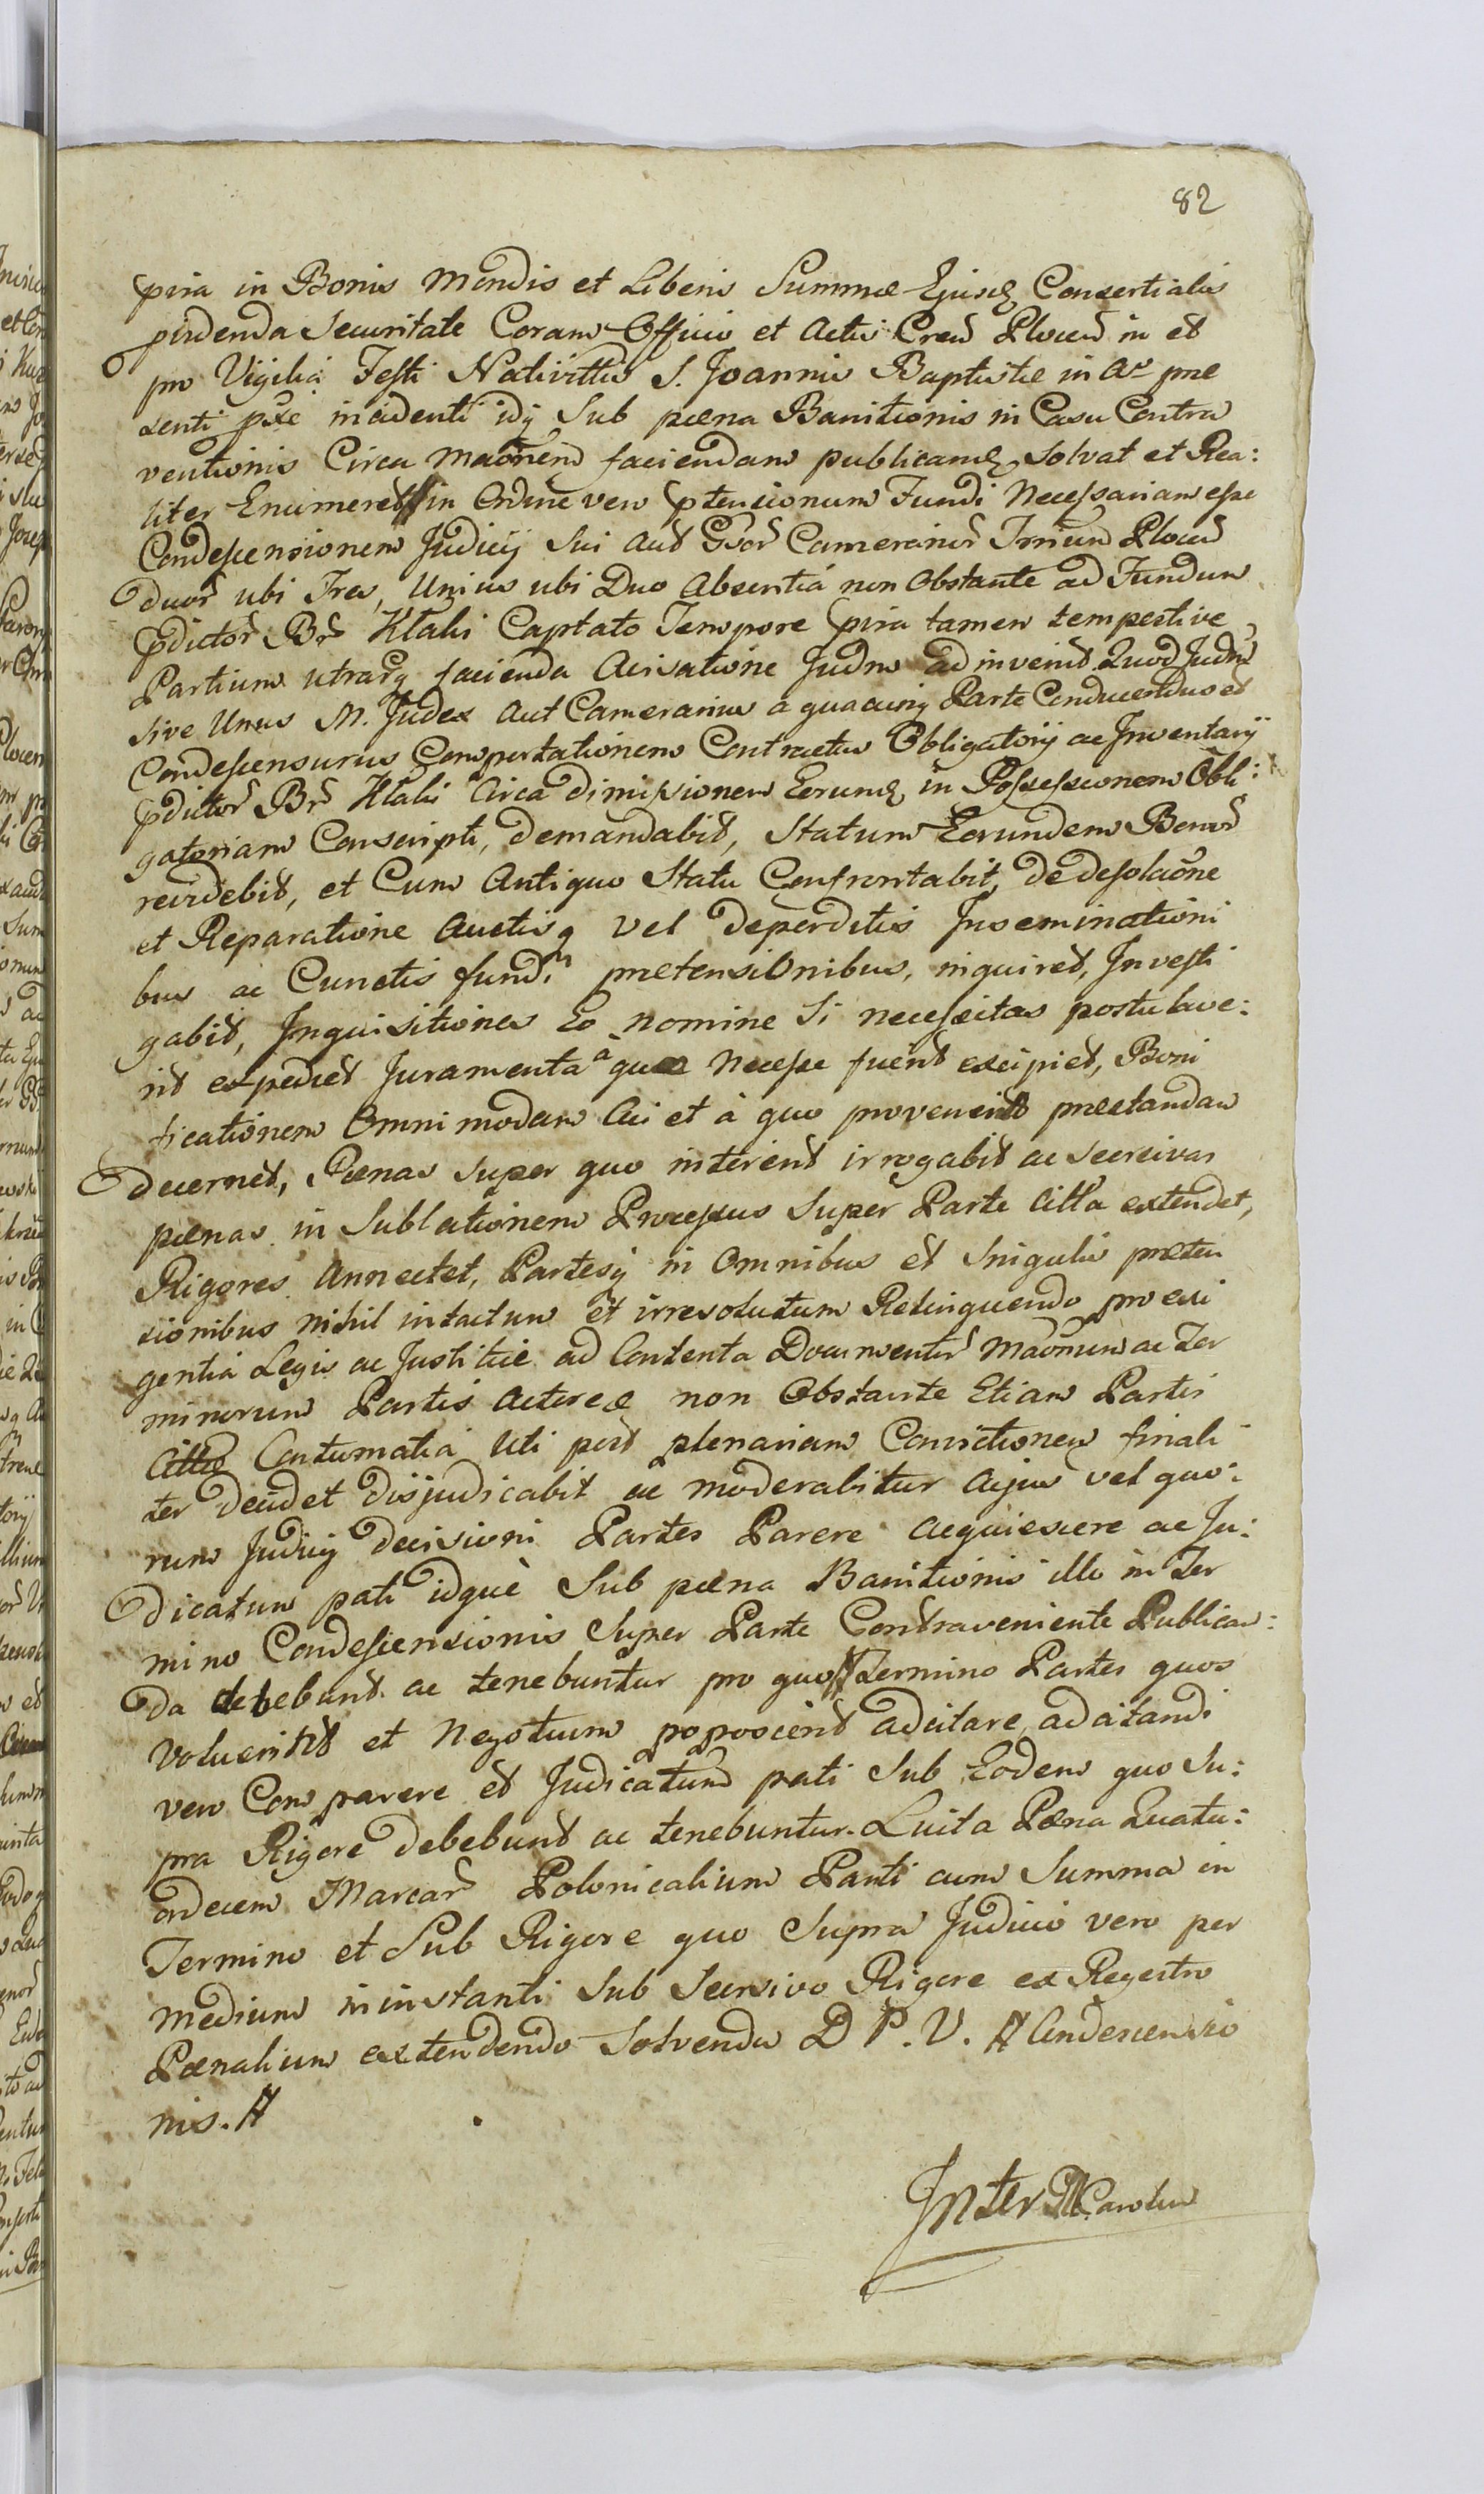 82
pira in Bonis Mondis et Liberis Summæ Ejusq Consertialis
pirdenda Securitate Coram Officio et Actis Cren Plocen in et
pro Vigilia Festi Nativittis S. Joannis Baptistæ in Ao præ
senti pxe incidenti idq Sub pæna Banitionis in Casu Contra
ventionis Circa Maonem faciendam publicandq Solvat et Rea:
liter Enumeret in Ordine vero ptensionum Fundi Necessariam esse
Condescensionem Judicij Sui Aut Gsor Camerarior Trnium Plocen
duor ubi Tres, Unius ubi Duo Absentiá non Obstante ad Fundum
pdictor Br Ktalis Captato Tempore pira tamen tempestive
Partium utrarq facienda Avisatione Judm Adinvenit Quod Judm
sive Unus M. Judex Aut Camerarius a quacunq Parte Conducendus et
Condescensurus Comportationem Contractus Obligatorij ac Inventarij
pdictor Br Ktalis Circa dimissionem Eorundq in Possessionem Obli:
gatoriam Conscripti, demandabit, Statum Eorundem Bonor
revidebit, et Cum Antiquo Statu Confrontabit, de desolaõne
et Reparatione Auctisq vel deperditis Inseminationi
bus ac Cunctis fundi prætensionibus, inquiret, Investi
gabit, Inquisitiones Eo Nomine Si necessitas postulave:
rit expediet Juramenta à quo Necesse fuerit excipiet, Boni
ficationem Omnimodam Cui et à quo provenerit præstandam
decernet, Pænas super quo intererit irrogabit ac Secsivas
pænas in Sublationem Processus Super Parte Citta extendet,
Rigores Annectet, Partesq in Omnibus et Singulis præten
sionibus nihil intactum et irresolutum Relinquendo pro exi
gentia Legis ac Justitiæ ad Contenta Documentor Maõnum ac Ter
minorum Partis Actoreæ non Obstante Etiam Partis
Cittæ Contumatia Uti post plenariam Convictionem finali
ter decidet disjudicabit ac moderabitur Cujus vel quo:
rum Judicij decisioni Partes Parere acquiescere ac Ju:
dicatum pati idquè Sub pæna Banitionis illo in Ter
mino Condescensionis Super Parte Contraveniente Publican:
da debebunt ac tenebuntur pro quo Termino Partes quos
voluerint et Negotium poposcerit adcitare, adcitandi
vero Comparere et Judicatum pati Sub Eodem quo Su:
pra Rigore debebunt ac tenebuntur. Luita Pæna Quatu:
ordecem Marcar Polonicalium Parti cum Summa in
Termino et Sub Rigore quo Supra Judicio vero per
medium in instanti Sub Secsivo Rigore ex Regestro
Pænalium extendendo Solvenda D P. V. Condescensio
nis.
Inter Carolum